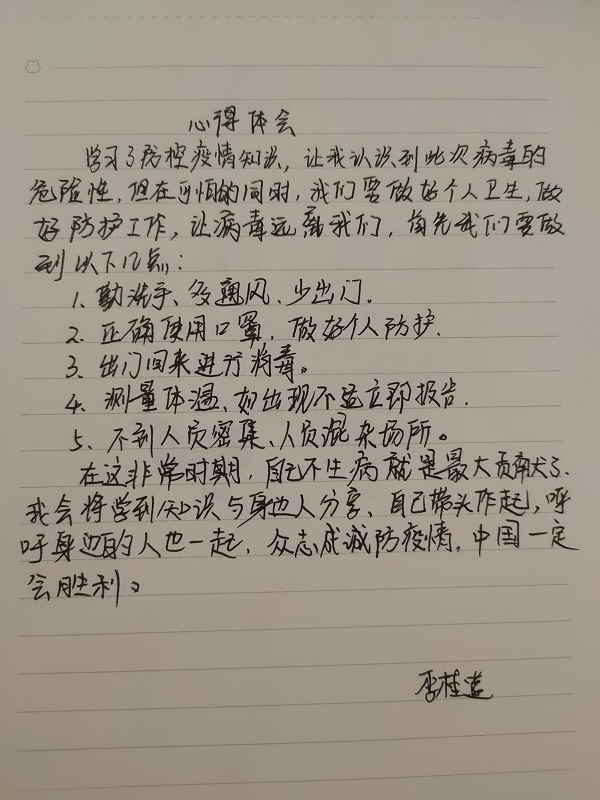 心得体会
学习了防控疫情知识，让我认识到此次病毒的
危险性，但在可怕的同时，我们要做好个人卫生，做
好防护工作，让病毒远离我们，首先我们要做
到以下几点：
1、勤洗手、多通风、少出门.
2、正确使用口罩，做好个人防护.
3、出门回来进行消毒。
4、测量体温、如出现不适立即报告.
5、不到人员密集、人员混杂场所。
在这非常时期，自己不生病就是最大贡献了.
我会将学到知识与身边人分享、自己带头作起，呼
吁身边的人也一起，众志成城防疫情，中国一定
会胜利。
李桂